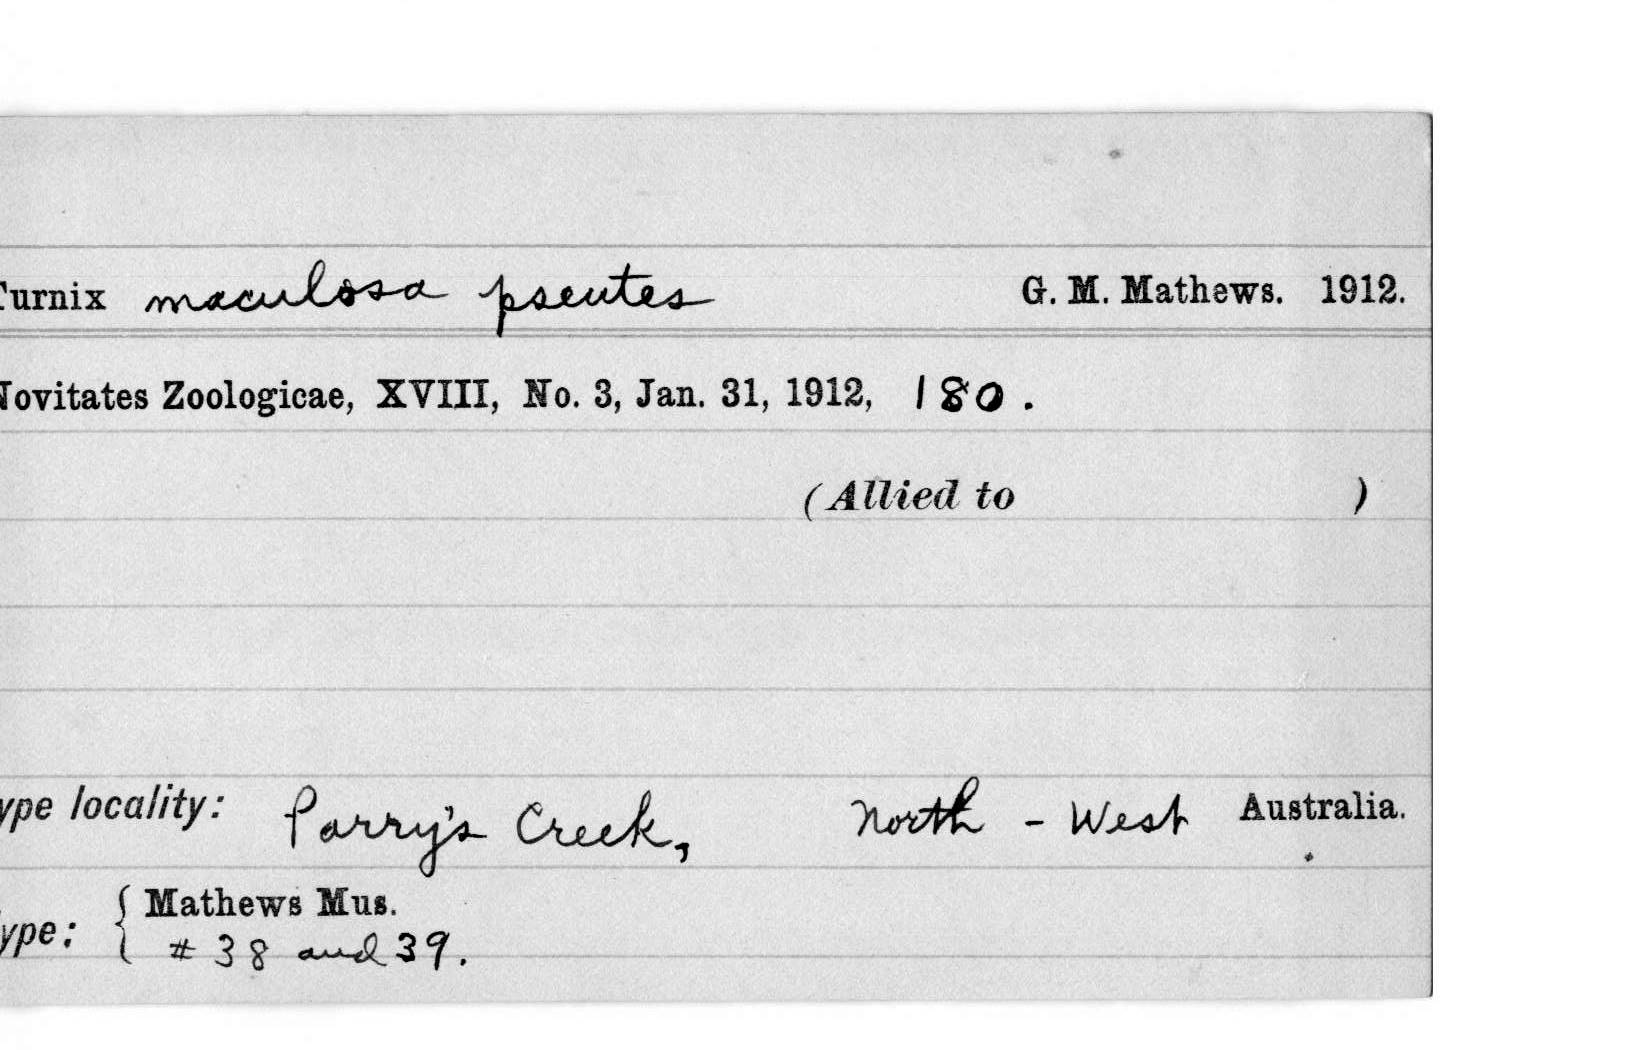 Turnix maculosa pseutes G. M. Mathews. 1912.
Novitates Zoologicae, XVIII, No. 3, Jan. 31, 1912, 180.
(Allied to )
ype locality: Parry's Creek, North - West Australia.
ype: { Mathews Mus.
# 38 and 39.